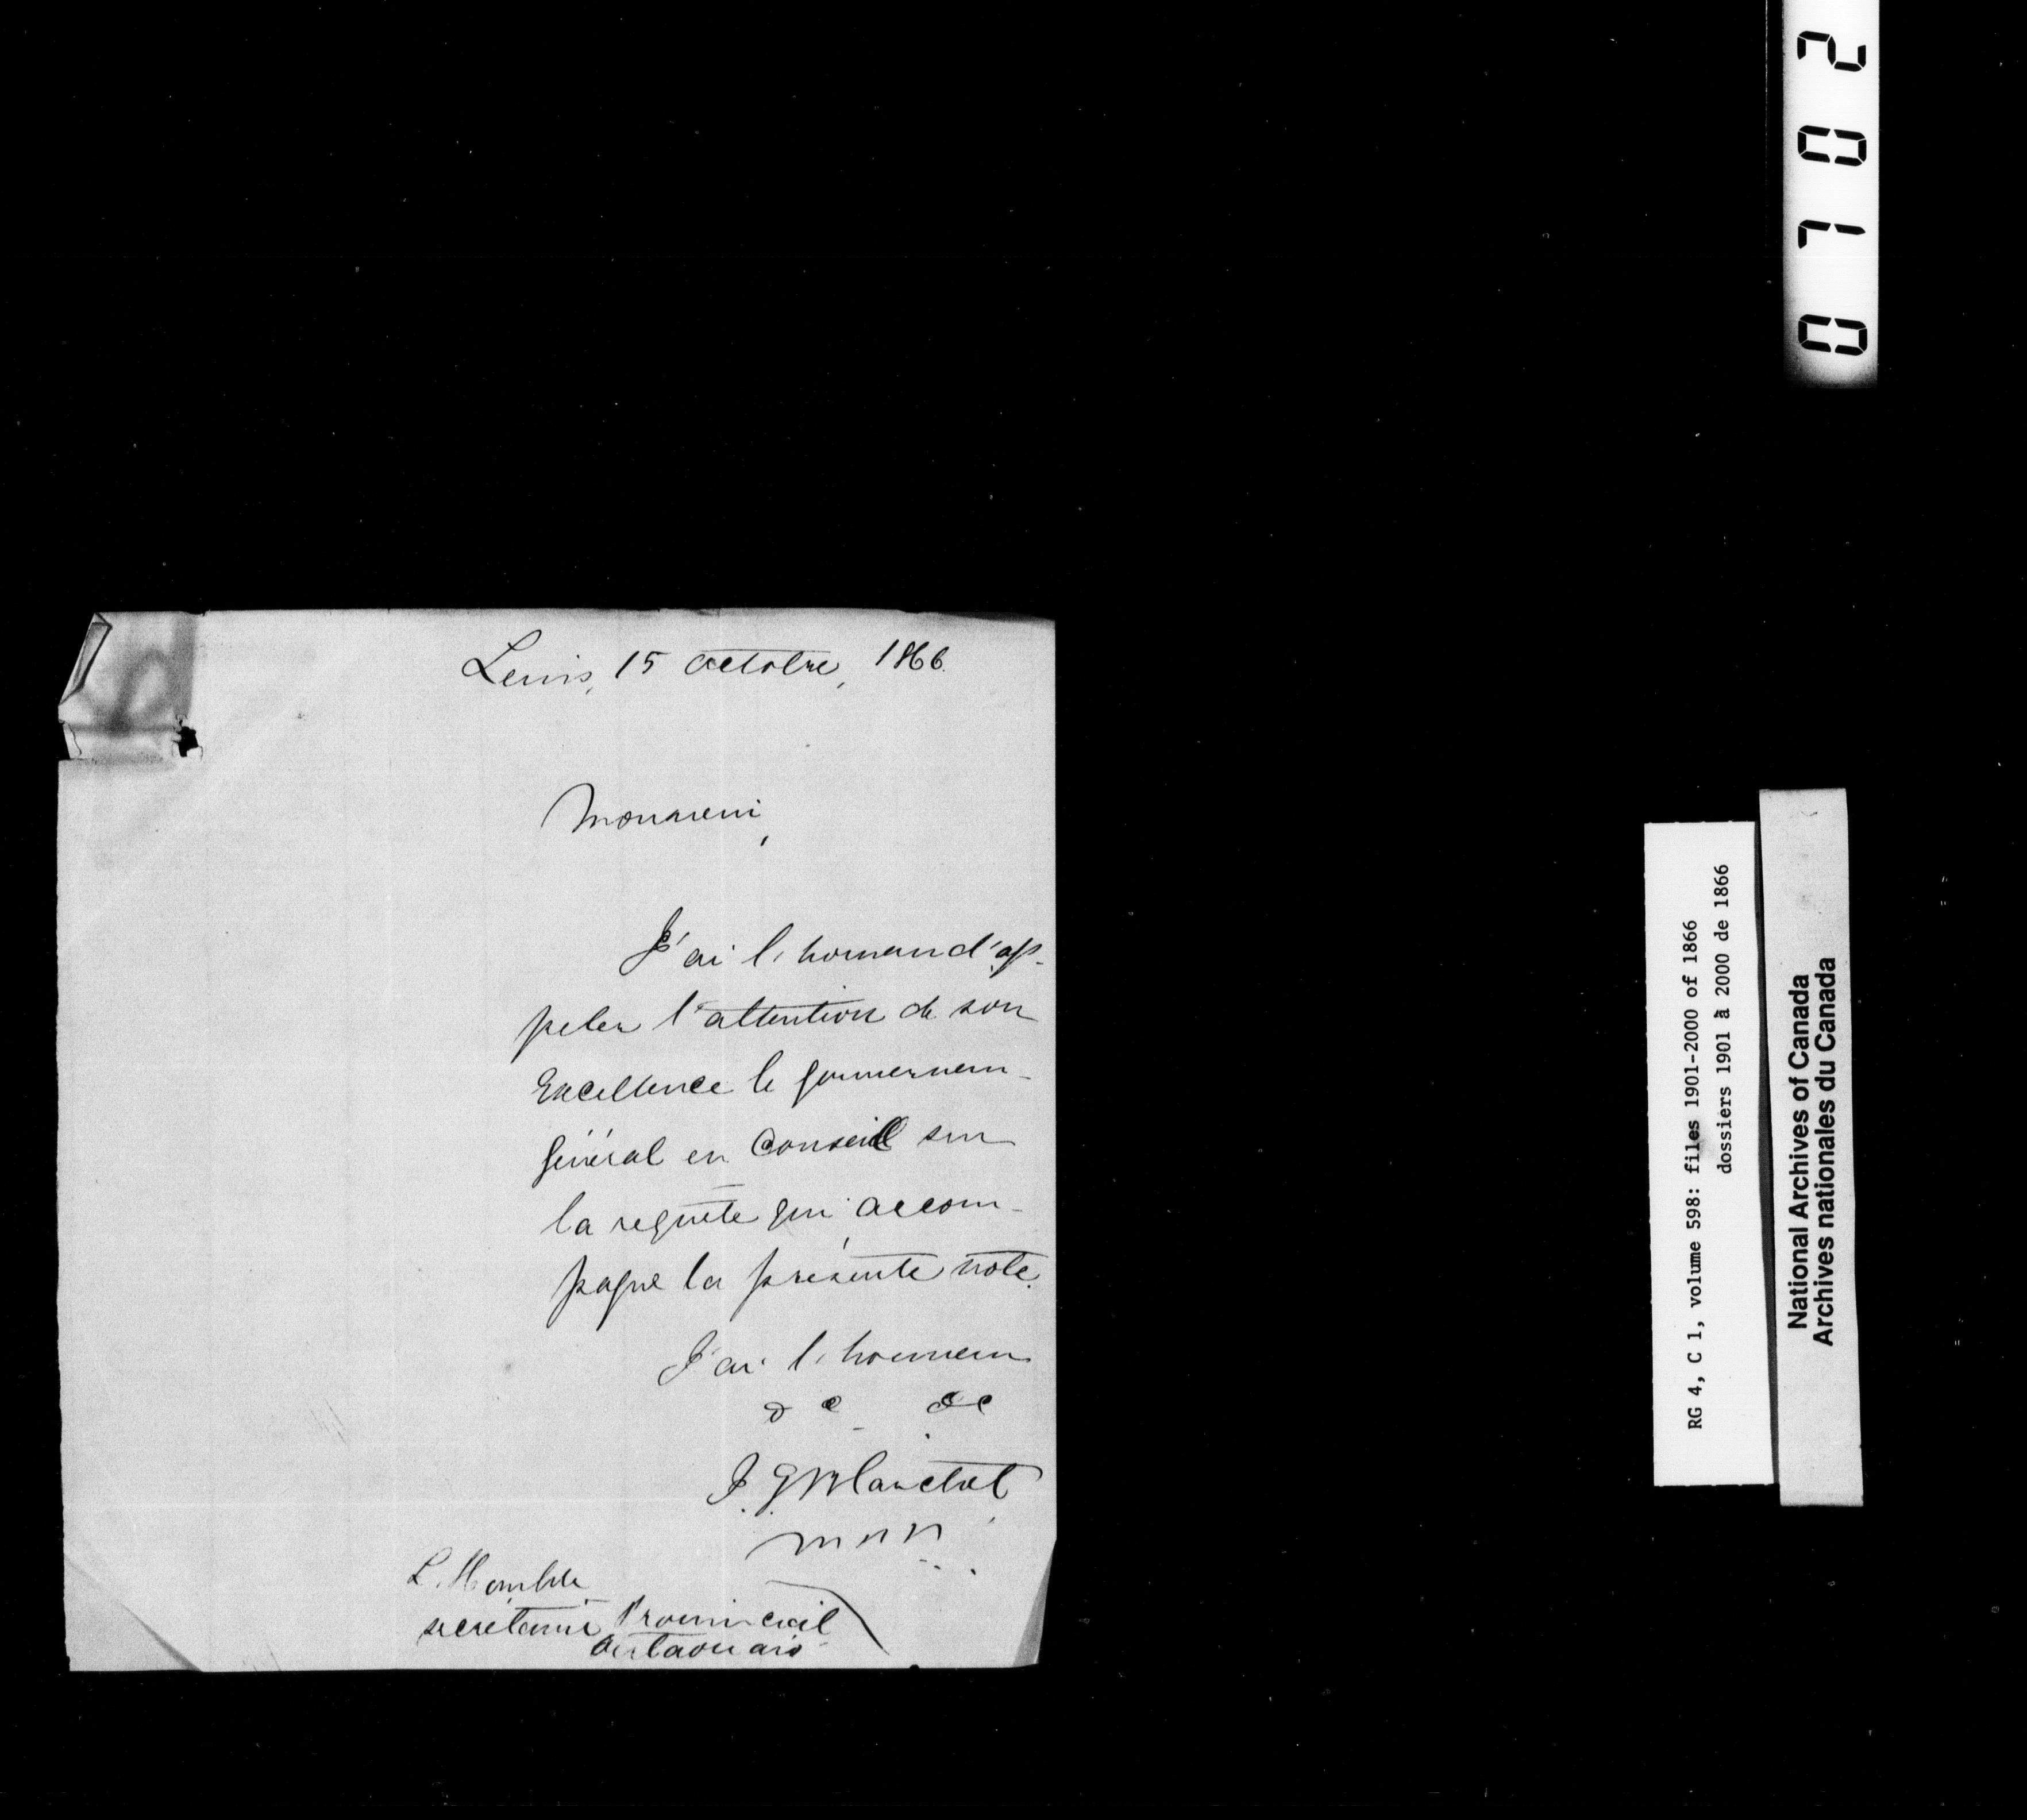 Levis, 15 octobre, 1866.
Monsieur,
J'ai l'honneur d'ap-
peler l'attention de son
Excellence le gouverneur-
général en Conseil sur
la requête qui accom-
pagne la présente note.
J'ai l'honneur
&c &c
J. G. Blanchet
M.P.P.
L'Honble
secrétaire Provincial
Outaouais
0702
RG 4, C 1, volume 598: files 1901-2000 of 1866
dossiers 1901 à 2000 de 1866
National Archives of Canada
Archives nationales du Canada